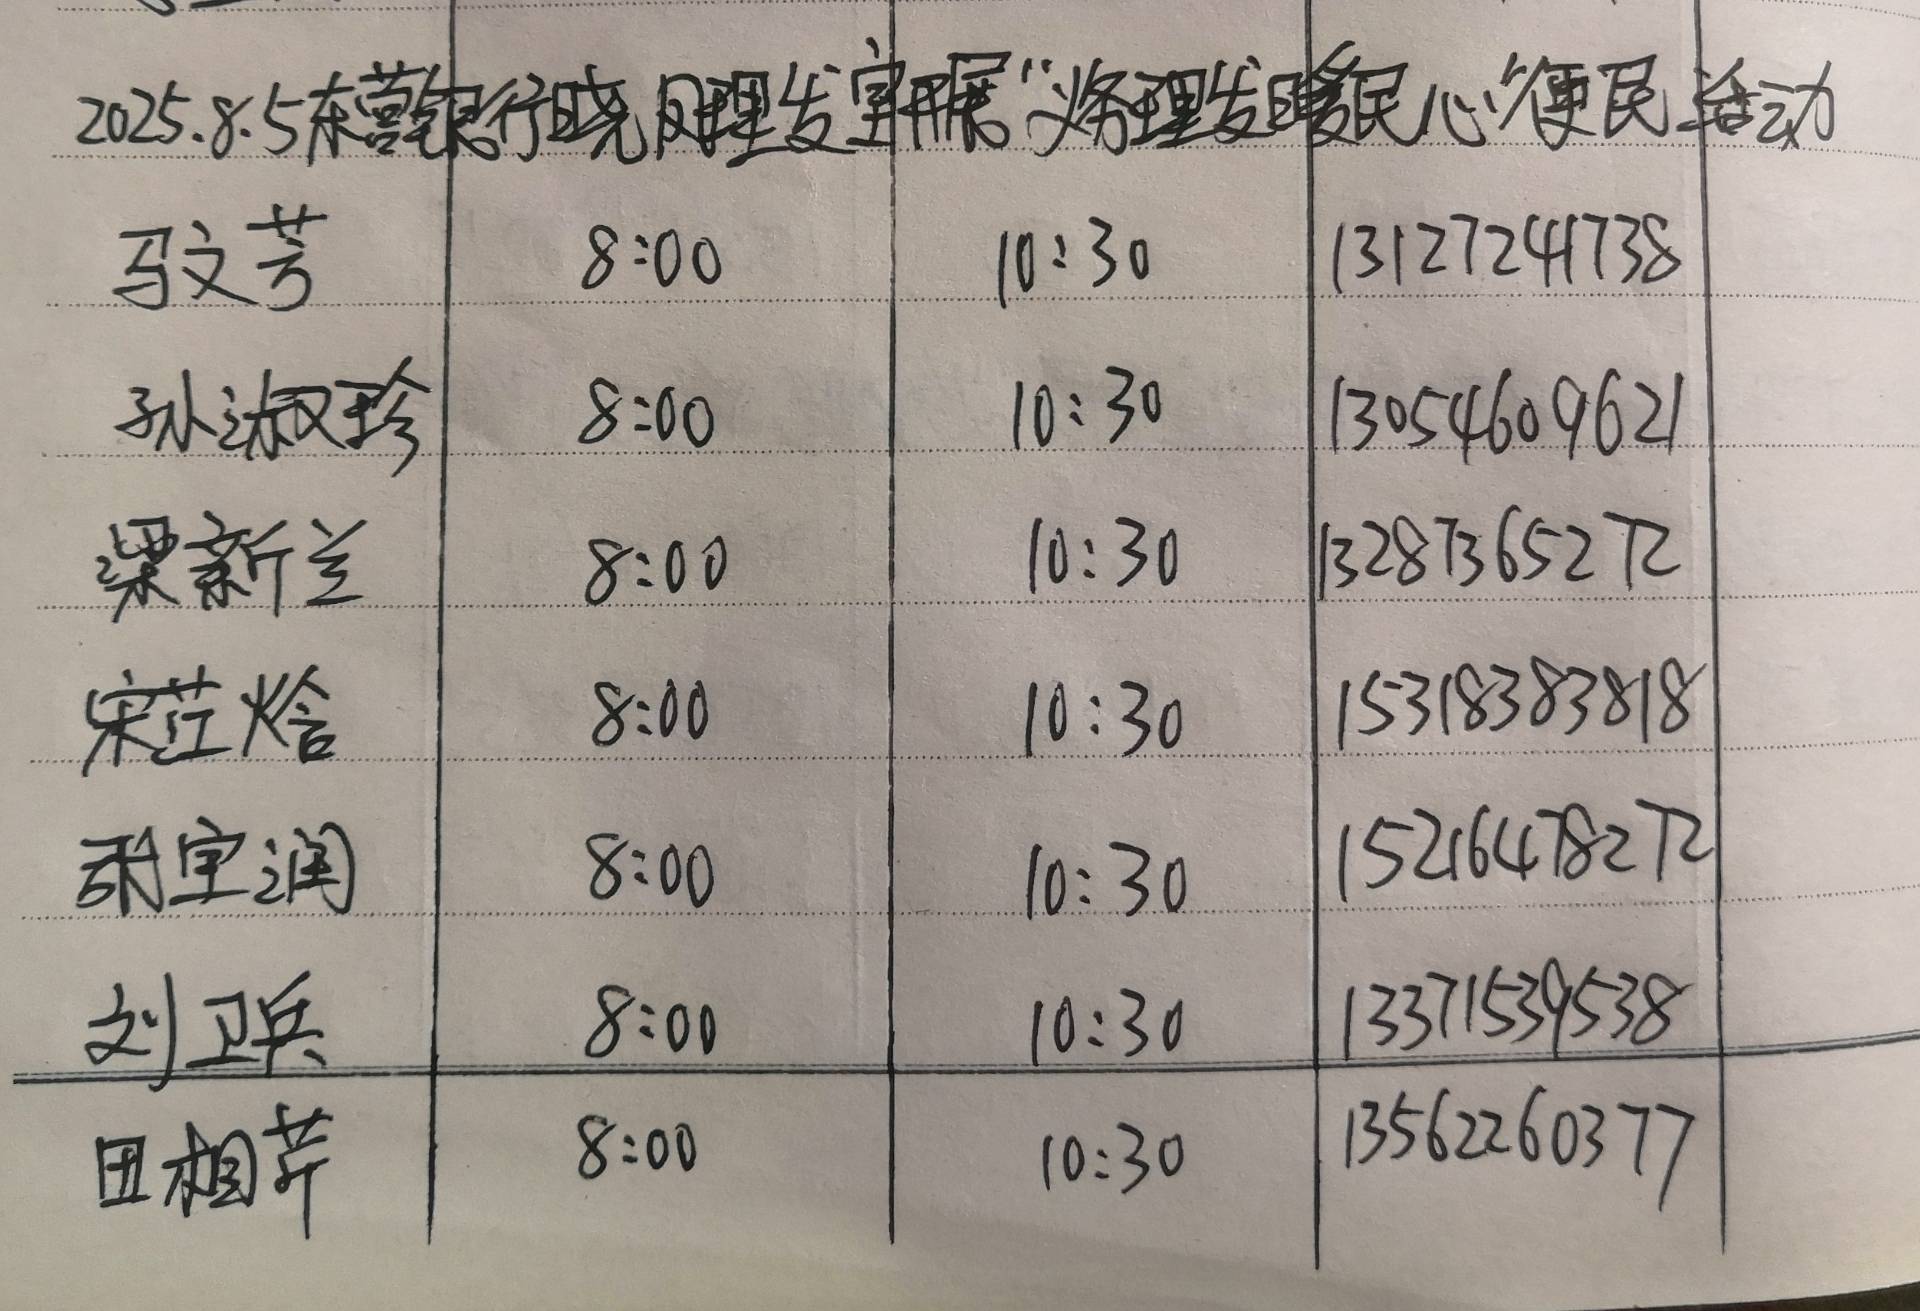 2025.8.5东营银行晓月理发室开展“义务理发暖民心”便民活动
马文芳 8:00 10:30 13127241738
孙淑珍 8:00 10:30 13054609621
梁新兰 8:00 10:30 13287365272
宋苙焓 8:00 10:30 15318383818
宝润 8:00 10:30 15216478272
刘卫兵 8:00 10:30 13371539538
田相芹 8:00 10:30 13562260377